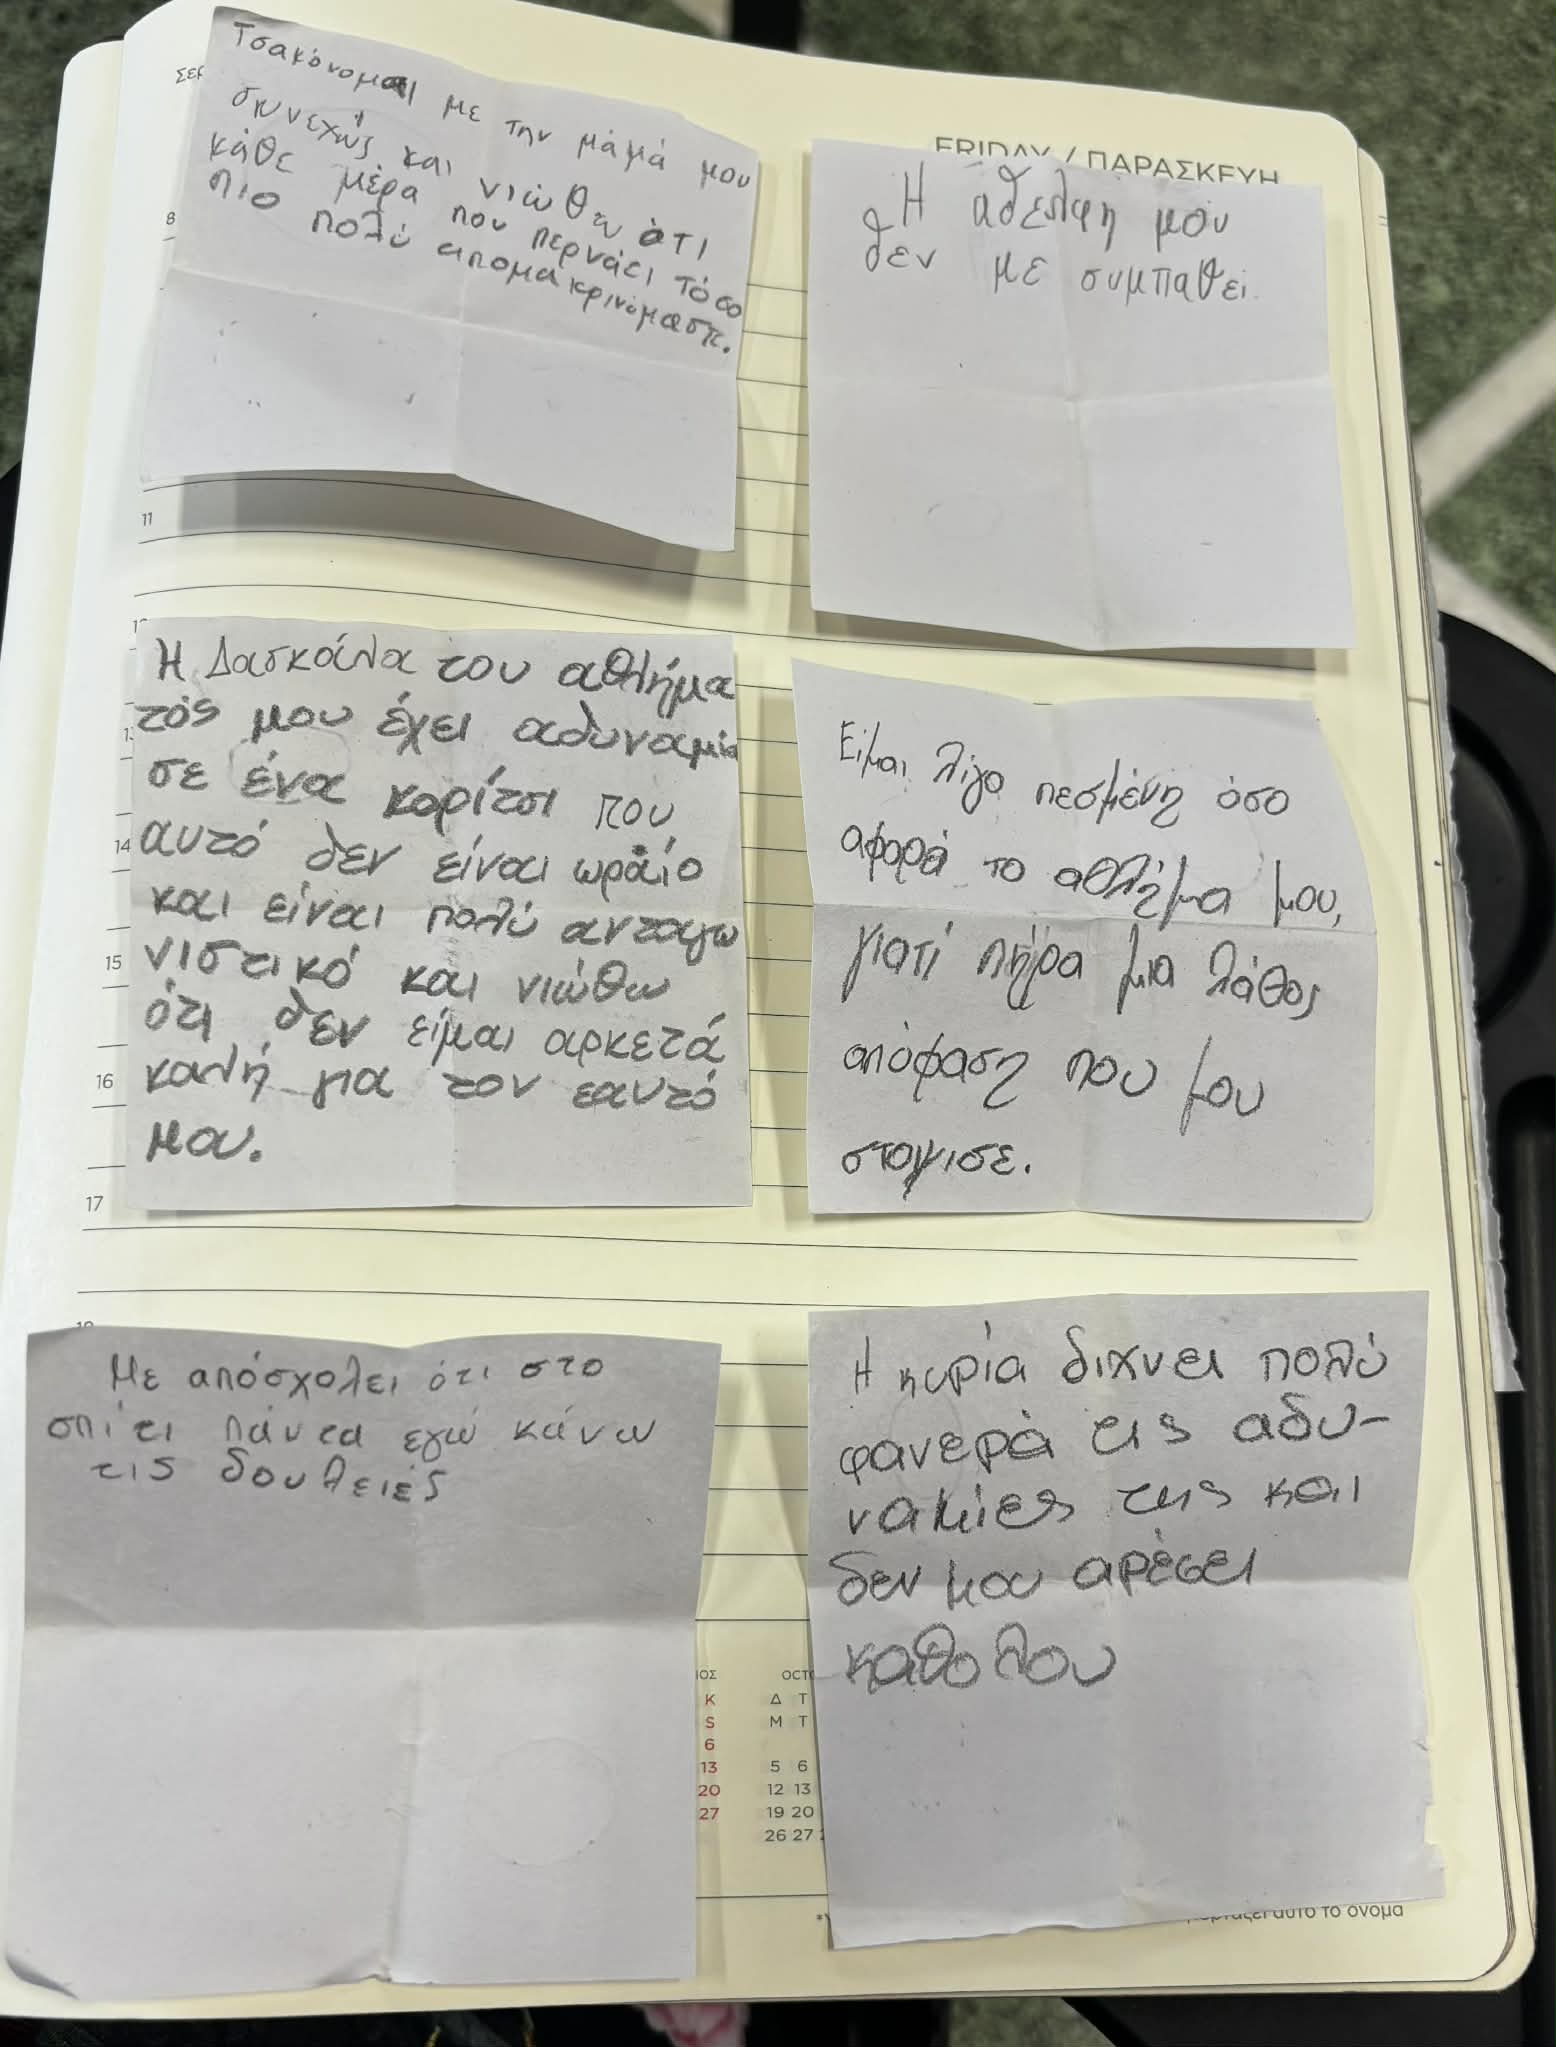 FRIDAY / ΠΑΡΑΣΚΕΥΗ
Τσακόνομαι με την μάμά μου
συνεχώς και νιώθω ότι
κάθε μέρα που περνάει τόσο
πιο πολύ απομακρινόμαστε.
Η άδελφη μου
δεν με συμπαθεί.
8
11
Η Δασκάλα του αθλήμα
τός μου έχει αδυναμία
σε ένα κορίτσι που
αυτό δεν είναι ωραίο
και είναι πολύ ανταγω
νιστικό και νιώθω
ότι δεν είμαι αρκετά
καλή για τον εαυτό
μου.
Είμαι λίγο πεσμένη όσο
αφορά το αθλήμα μου,
γιατί πήρα μια λάθος
απόφαση που μου
στοψισε.
14
15
16
17
Με απόσχολει ότι στο
σπίτι πάντα εγώ κάνω
τις δουλειές
Η κυρία διχνει πολύ
φανερά τις αδυ-
ναμίες της και
δεν μου αρέσει
καθολου
ΙΟΣ OCT
Κ Δ Τ
S M T
6
13 5 6
20 12 13
27 19 20
26 27
αυτό το όνομα